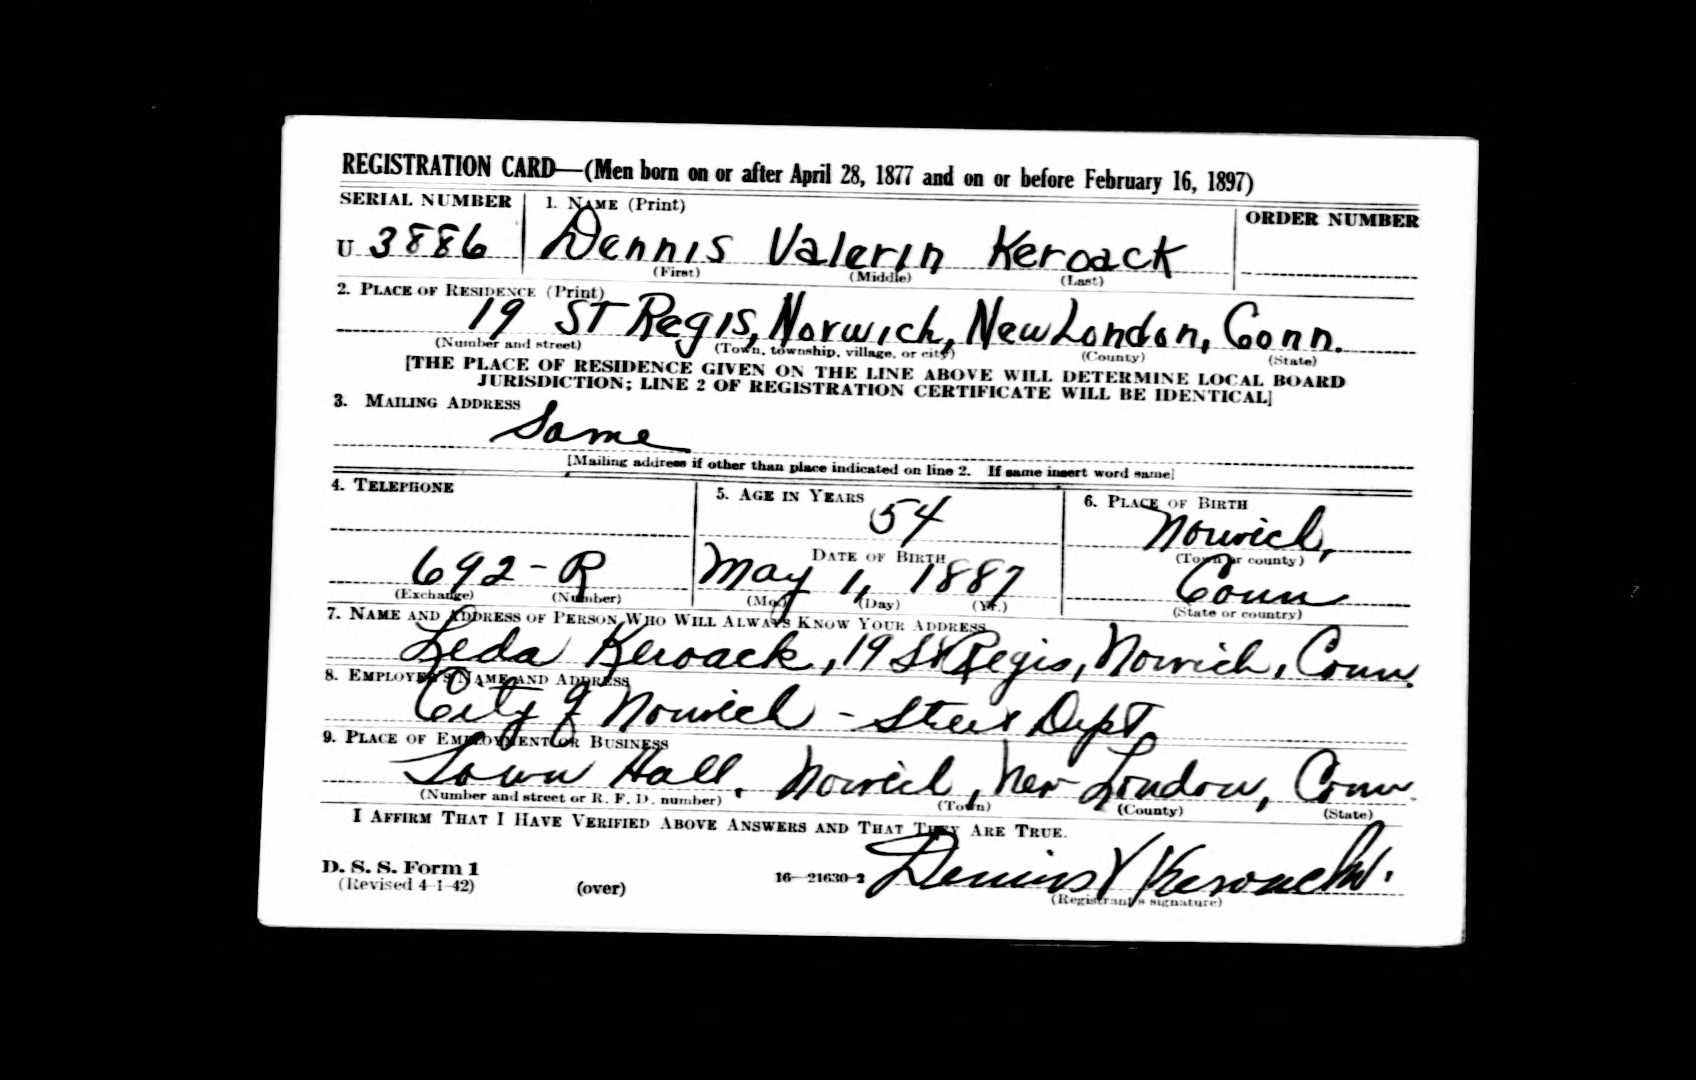 REGISTRATION CARD—(Men born on or after April 28, 1877 and on or before February 16, 1897)
SERIAL NUMBER 1. NAME (Print) ORDER NUMBER
U 3886 Dennis Valerin Keroack
(First) (Middle) (Last)
2. PLACE OF RESIDENCE (Print)
19 ST Regis, Norwich, New London, Conn.
(Number and street) (Town, township, village, or city) (County) (State)
[THE PLACE OF RESIDENCE GIVEN ON THE LINE ABOVE WILL DETERMINE LOCAL BOARD
JURISDICTION; LINE 2 OF REGISTRATION CERTIFICATE WILL BE IDENTICAL]
3. MAILING ADDRESS
Same
[Mailing address if other than place indicated on line 2. If same insert word same]
4. TELEPHONE 5. AGE IN YEARS 6. PLACE OF BIRTH
54 Norwich,
DATE OF BIRTH (Town or county)
692-R May 1, 1887 Conn
(Exchange) (Number) (Mo.) (Day) (Yr.) (State or country)
7. NAME AND ADDRESS OF PERSON WHO WILL ALWAYS KNOW YOUR ADDRESS
Leda Keroack, 19 St Regis, Norwich, Conn.
8. EMPLOYER'S NAME AND ADDRESS
City of Norwich - Street Dept.
9. PLACE OF EMPLOYMENT OR BUSINESS
Town Hall, Norwich, New London, Conn.
(Number and street or R. F. D. number) (Town) (County) (State)
I AFFIRM THAT I HAVE VERIFIED ABOVE ANSWERS AND THAT THEY ARE TRUE.
D. S. S. Form 1
(Revised 4-1-42) (over) 16—21630-2 Dennis V Keroack.
(Registrant's signature)